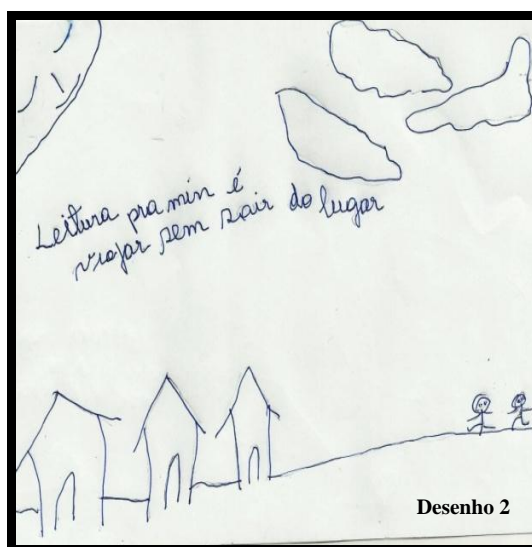 Leitura pra min é
viajar sem sair do lugar
Desenho 2